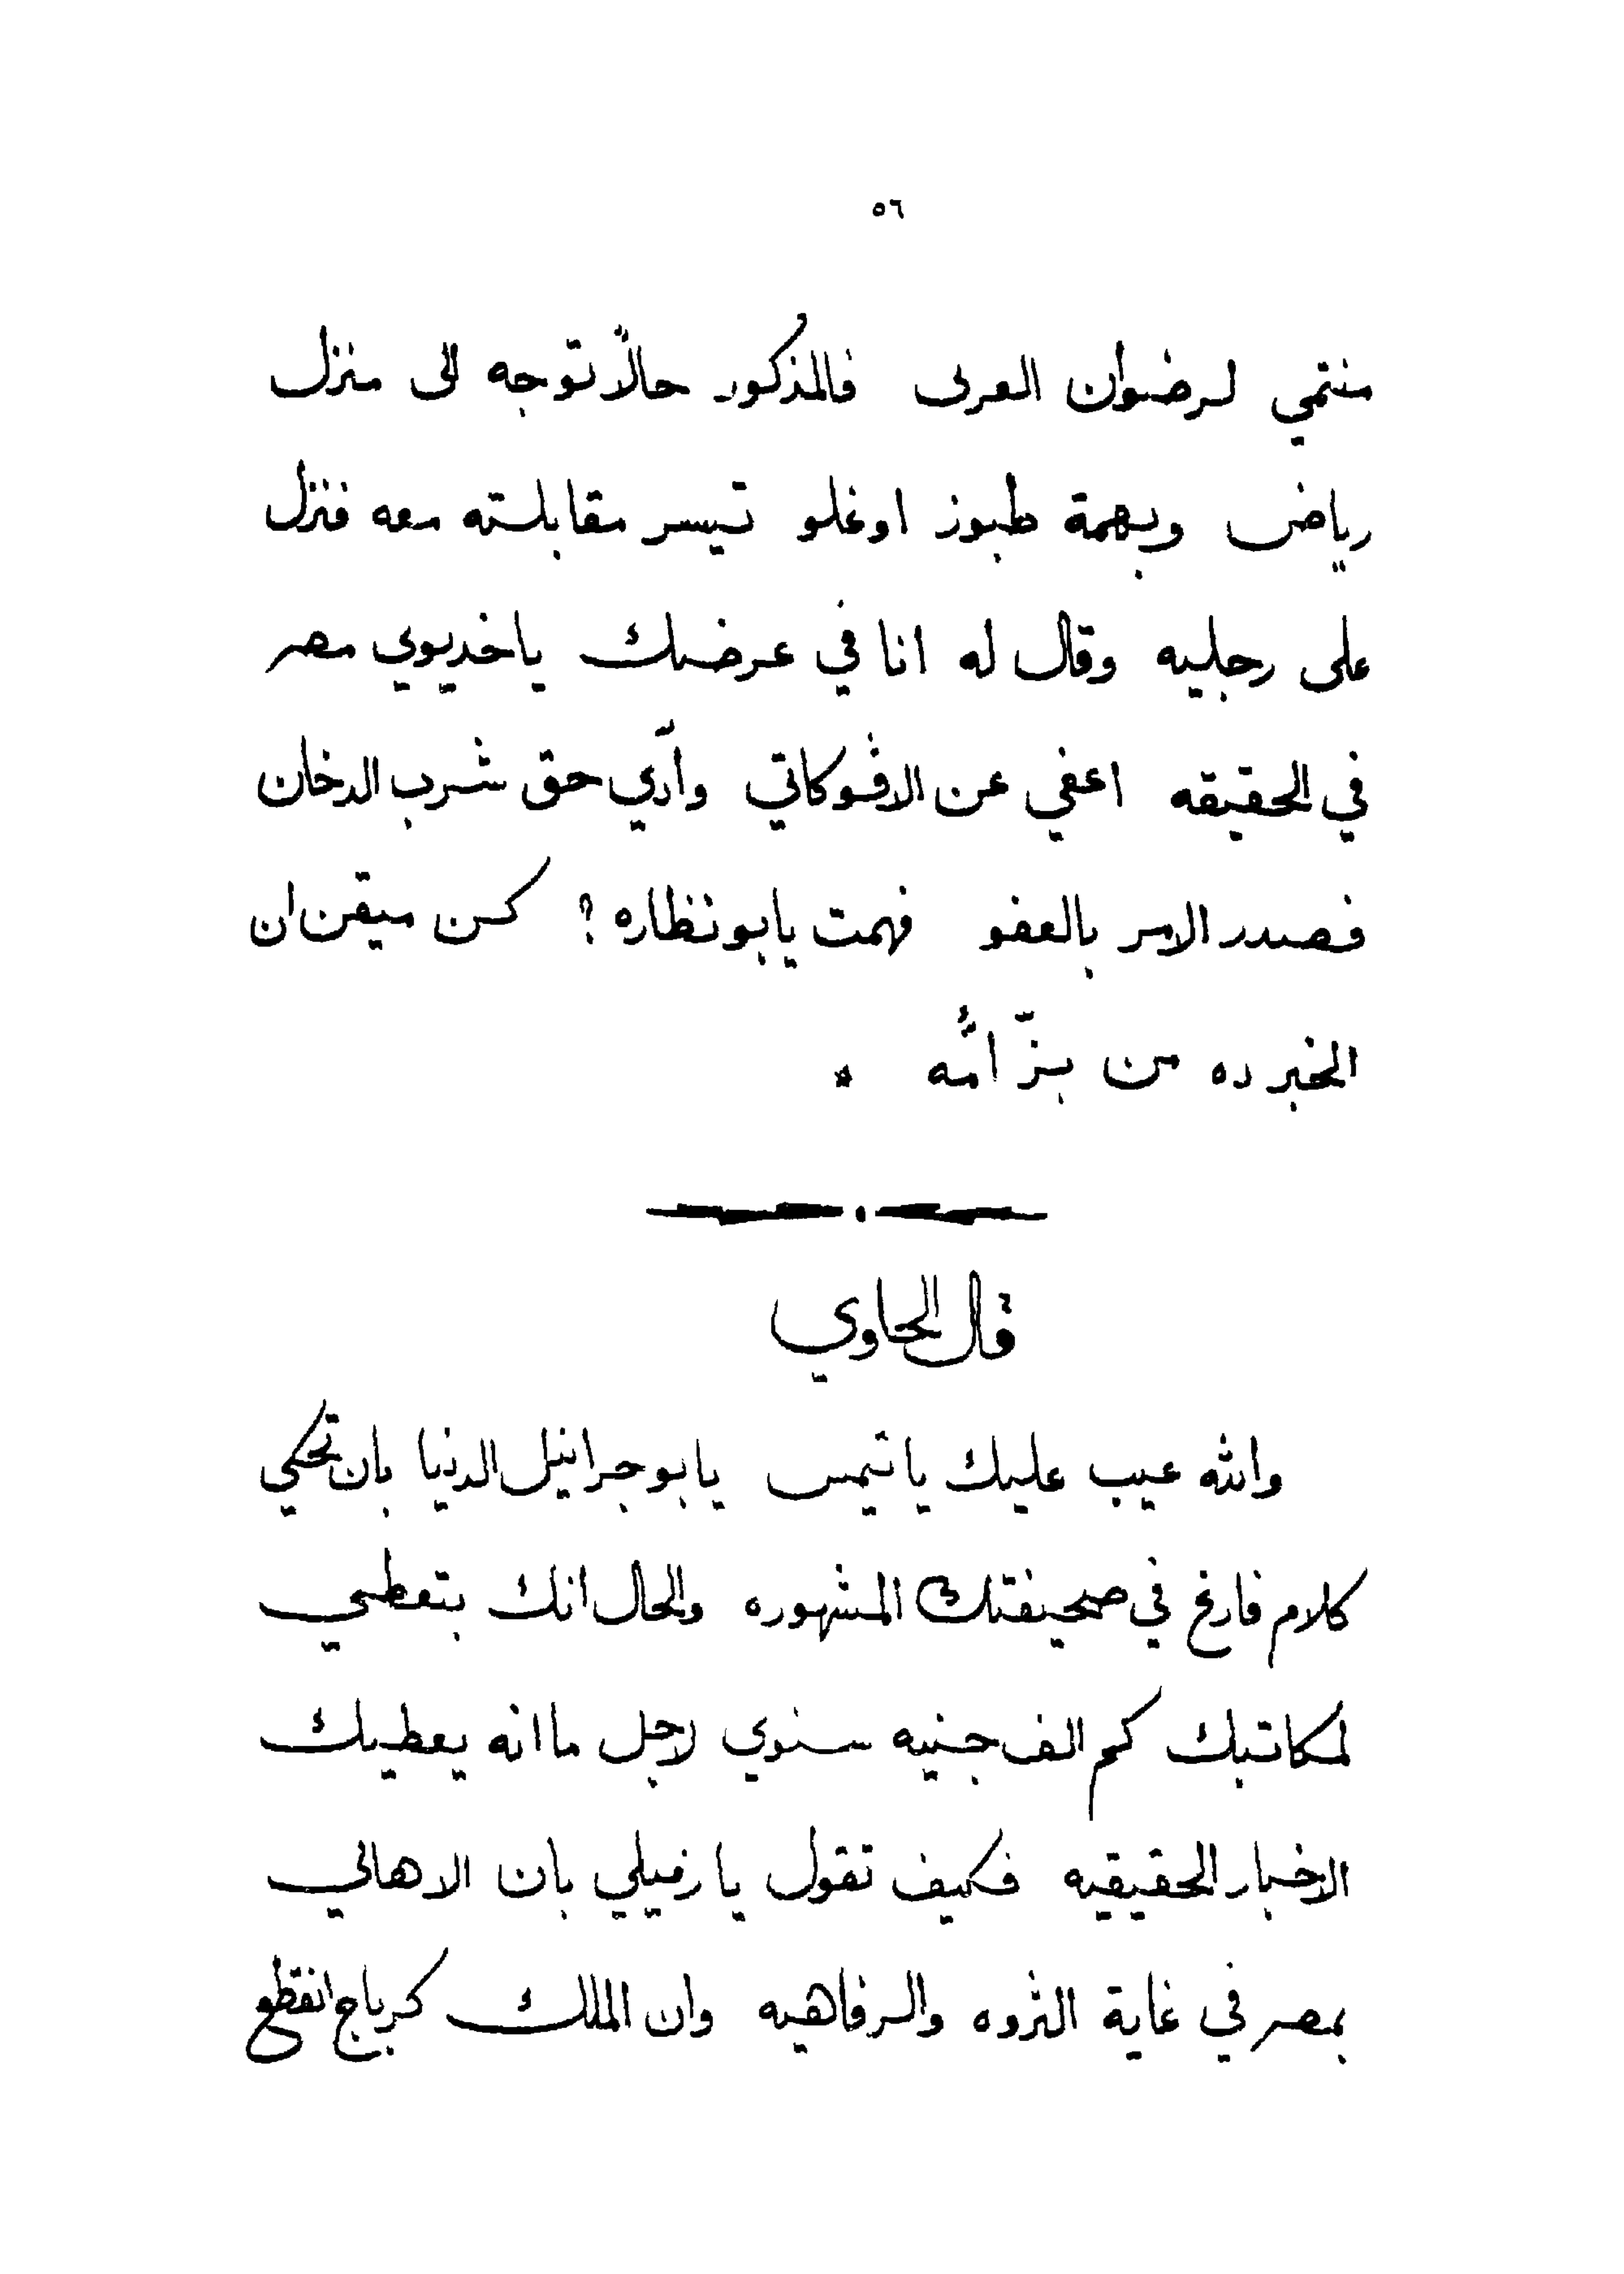 ٥٦
منتمي لرضوان العربى فالمذكور حالاً توجه الى منزل
رياض وبهمة طبوز اوغلو تيسر مقابلته معه فنزل
على رجليه وقال له انا في عرضك ياخديوي مصر
في الحقيقه اعفي عن الاڤوكاتي وآدي حق شرب الدخان
فصدر الامر بالعفو فهمت يابونظاره ؟ كن ميقن ان
الخبر ده من بزّ امُّه *
قال الحاوي
والله عيب عليك ياتيمس يابو جرانيل الدنيا بان تحكي
كلام فارغ في صحيفتك المشهوره والحال انك بتعطي
لمكاتبك كم الف جنيه سنوي لاجل ما انه يعطيك
الاخبار الحقيقيه فكيف تقول يا زميلي بان الاهالي
بمصر في غاية الثروه والرفاهيه وان الملك كرباج انقطع